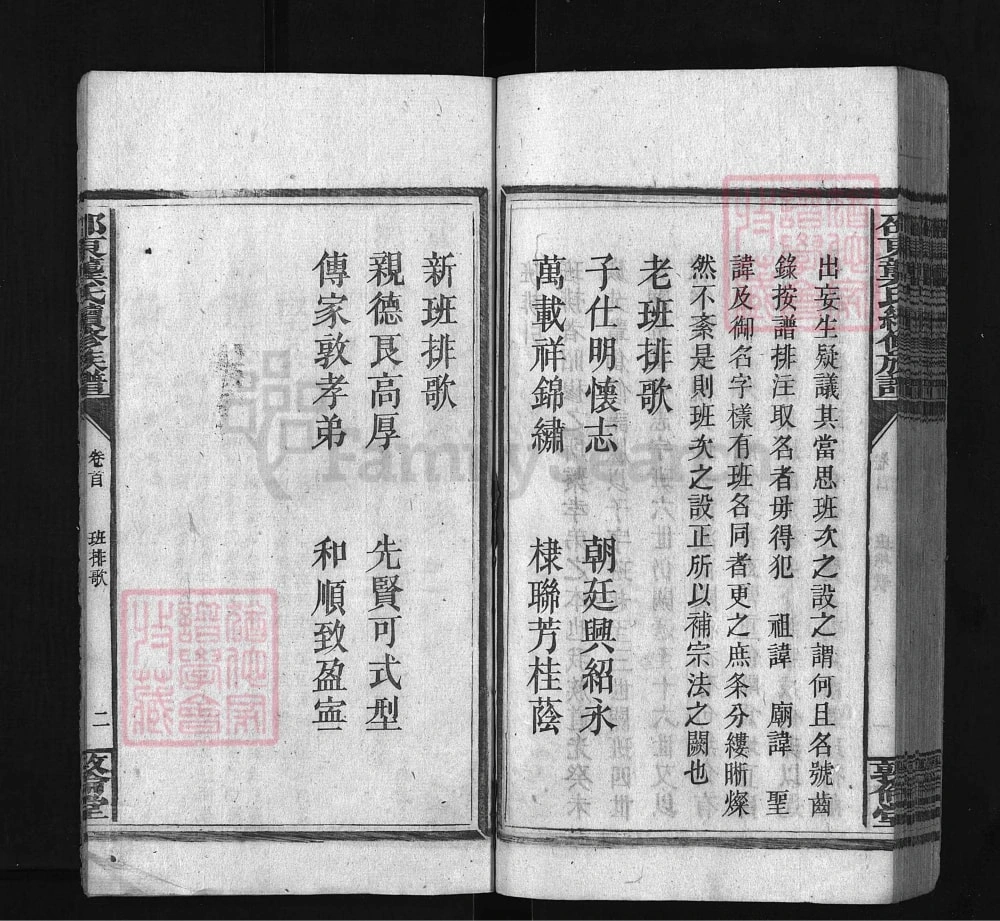 出妄生疑議其當思班次之設之謂何且名號齒
錄按譜排注取名者毋得犯 祖諱 廟諱 聖
諱及御名字樣有班名同者更之庶条分縷晰燦
然不紊是則班次之設正所以補宗法之闕也
老班排歌
子仕明懷志 朝廷興紹永
萬載祥錦繡 棣聯芳桂蔭
新班排歌
親德良高厚 先賢可式型
傳家敦孝弟 和順致盈寍
氏續修族譜
卷首
班排歌
二
敦倫堂
FamilySearch